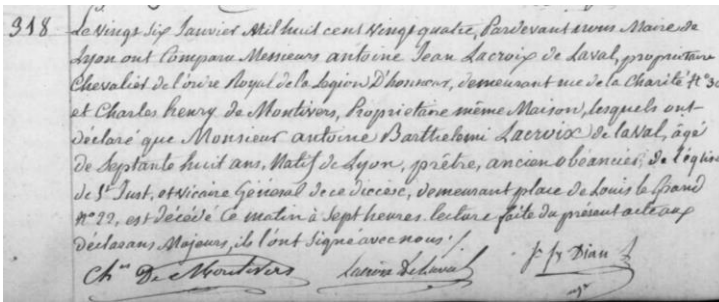 318 Le Vingt Six Janvier Mil huit cent vingt quatre, Pardevant nous Maire de
Lyon ont Comparu Messieurs antoine Jean Lacroix de Laval, propriétaire
Chevalier de l'ordre Royal de la Legion D'honneur, demeurant rue de la Charité N° 30
et Charles henry de Montivers, Propriétaire même Maison, lesquels ont
déclaré que Monsieur antoine Barthelemi Lacroix de Laval, âgé
de Septante huit ans, Natif de Lyon, prêtre, ancien obéancier, de l'église
de St Just, et Vicaire Général de ce diocèse, demeurant place de Louis le Grand
N° 22, est décédé ce matin à Sept heures. lecture faite du présent acte aux
déclarans Majeurs, ils l'ont Signé avec nous ./.
De Montivers Lacroix De Laval Dian